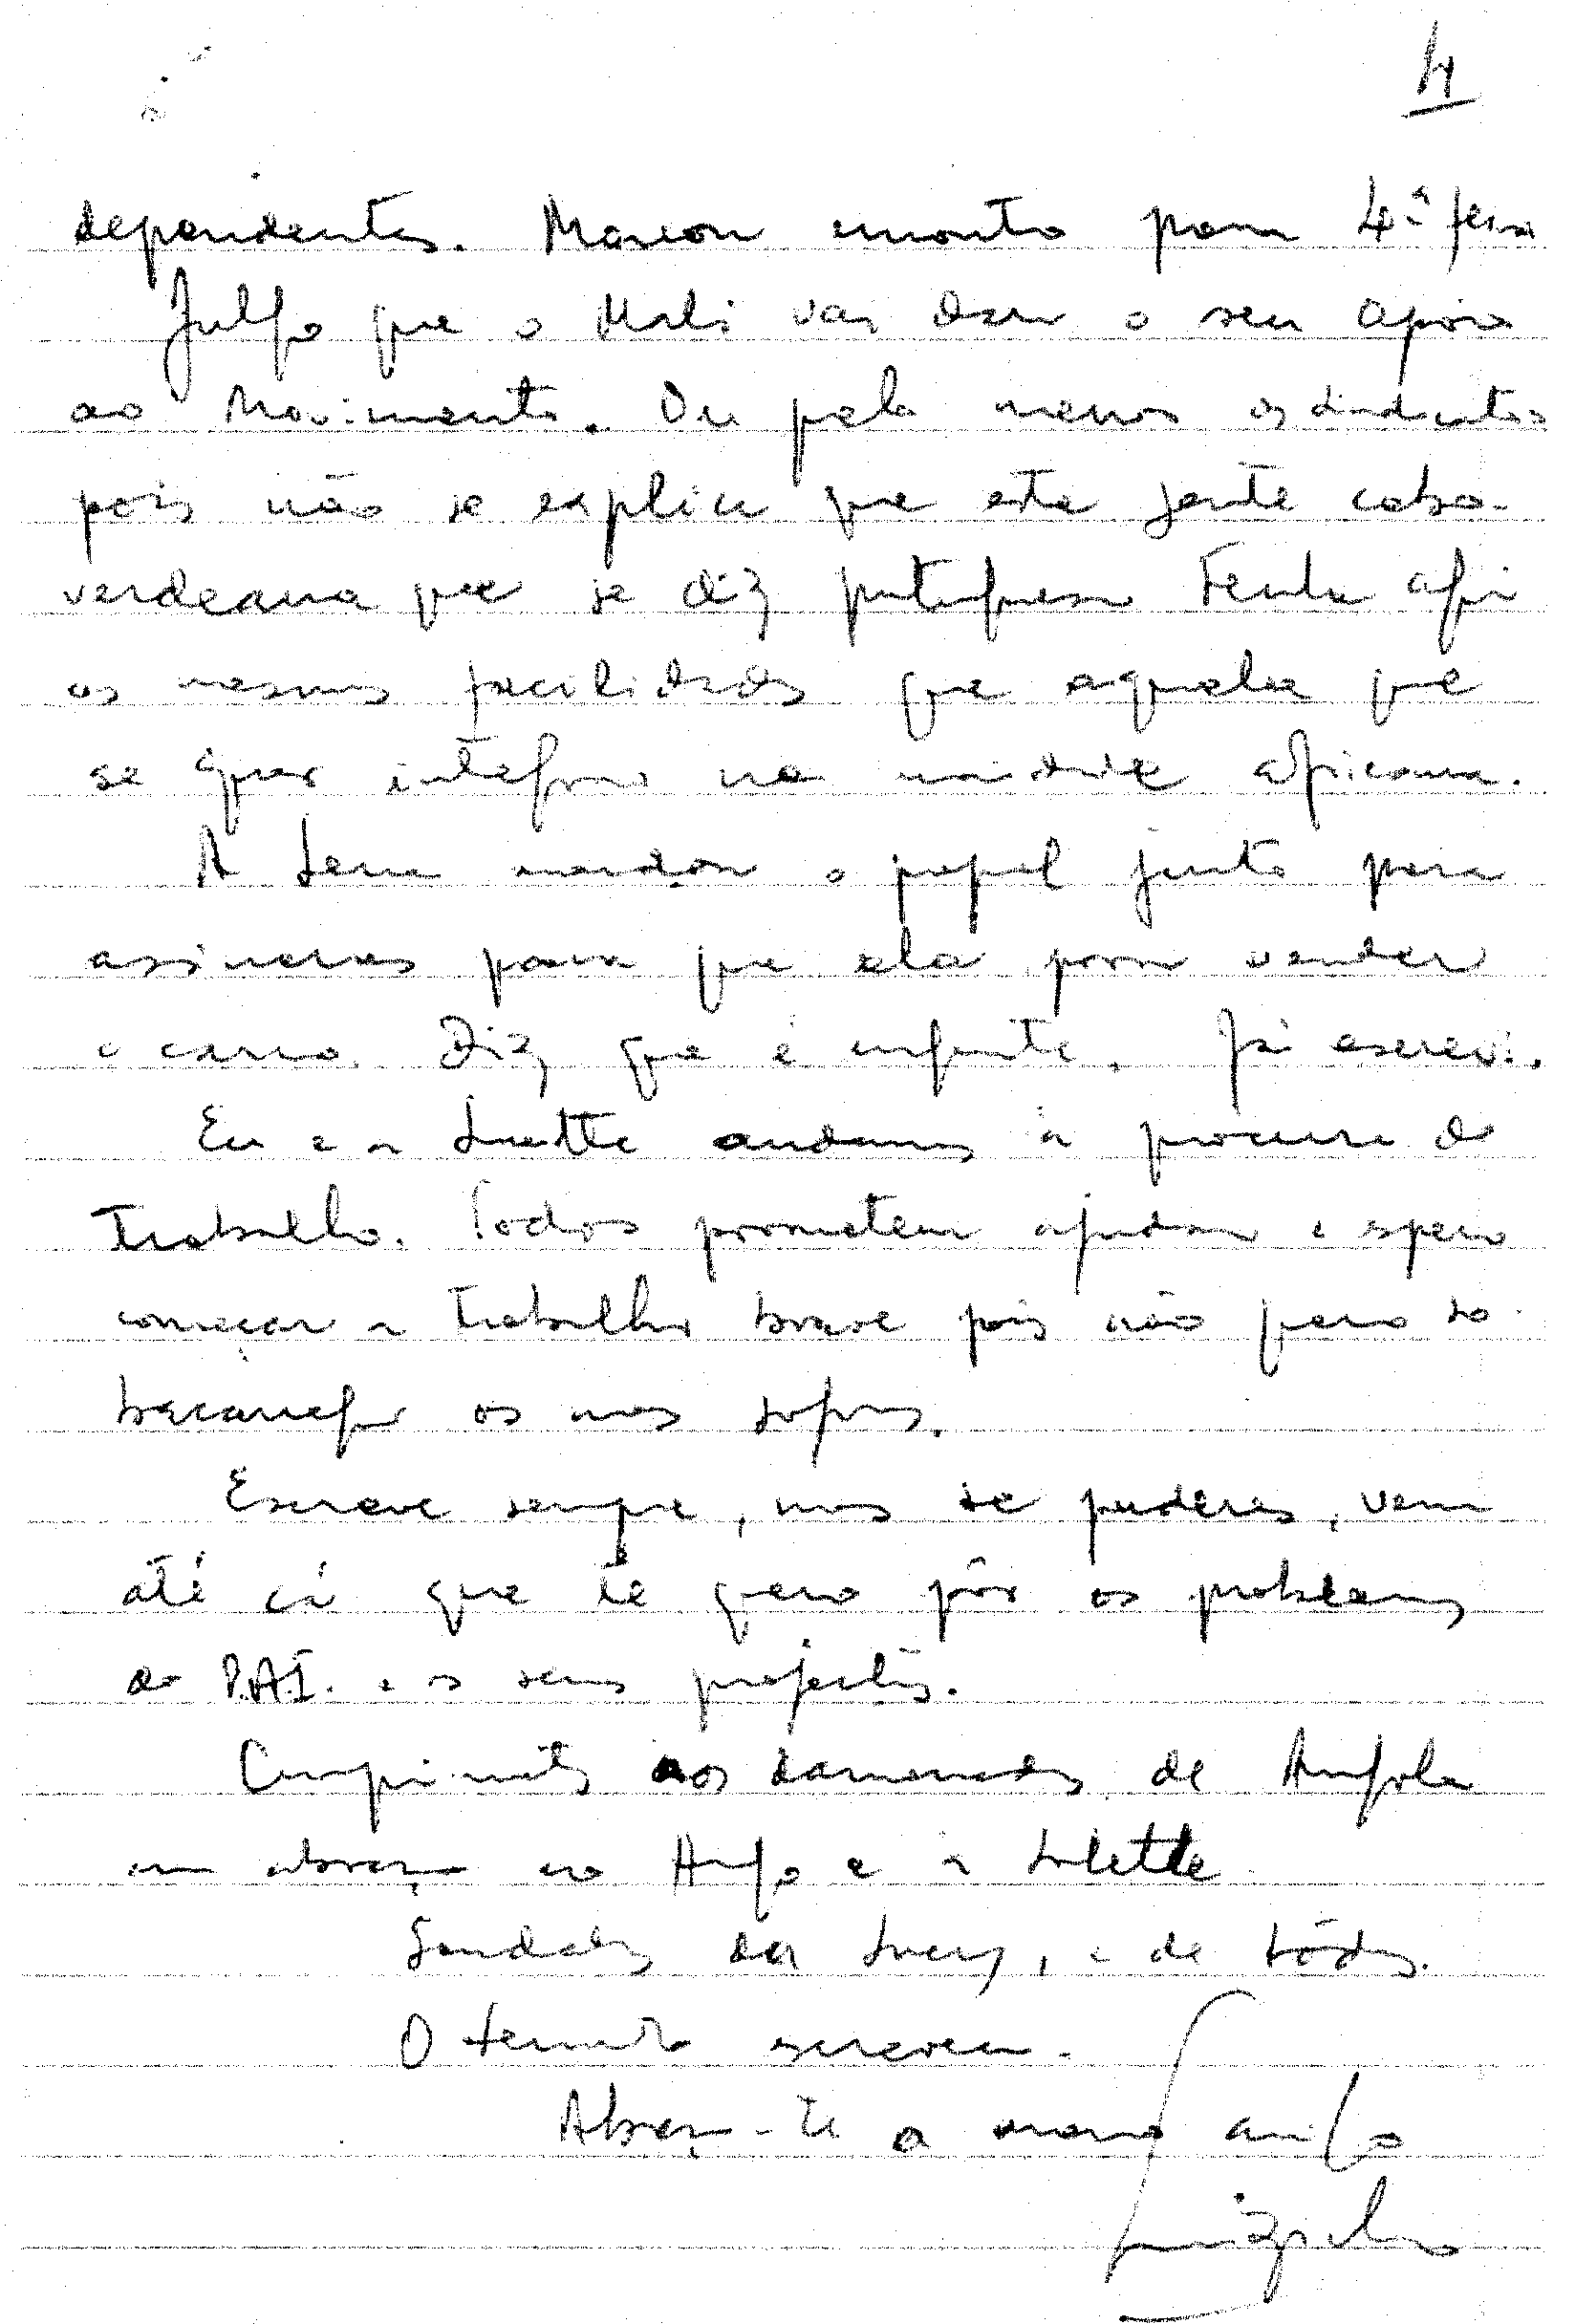 4
dependentes. Marcou encontro para 4ª feira
Julgo que o Mali vai dar o seu apoio
ao Movimento. Ou pelo menos os sindicatos
pois não se explica que esta gente cabo-
verdeana que se diz portuguesa tenha aqui
as mesmas facilidades que aquela que
se quer integrar na unidade africana.
A Lena mandou o papel junto para
assinares para que ela possa vender
o carro. Diz que é urgente. Já escrevi.
Eu e a Lucette andamos à procura de
trabalho. Todos prometem ajudar e espero
começar a trabalhar breve pois não quero so-
brecarregar os meus sogros.
Escreve sempre, mas se puderes, vem
até cá que te quero pôr os problemas
do P.A.I. e os seus projectos.
Cumprimentos aos camaradas de Angola
um abraço ao Hugo e à
Saudades da Lucy, e de todos.
O escreveu.
Abraça-te o mano amigo
Luiz Cabral